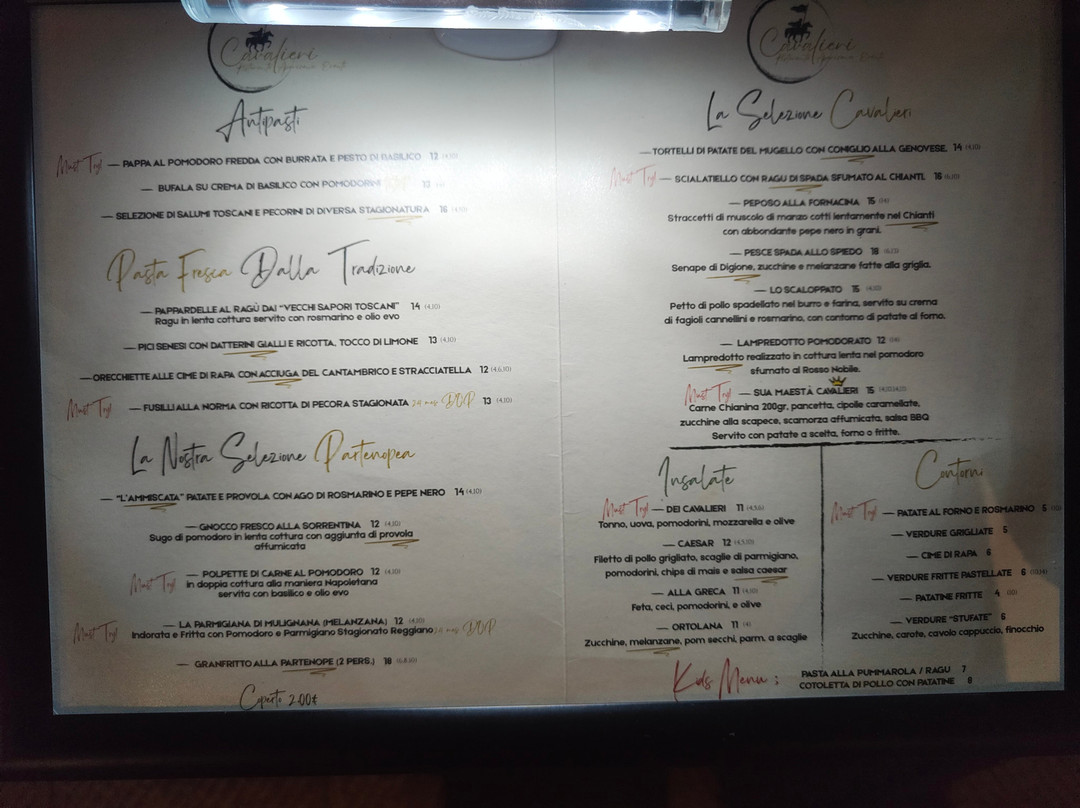 Cavalieri
Antipasti
Must Try! — PAPPA AL POMODORO FREDDA CON BURRATA E PESTO DI BASILICO 12 (4,10)
— BUFALA SU CREMA DI BASILICO CON POMODORINI
— SELEZIONE DI SALUMI TOSCANI E PECORINI DI DIVERSA STAGIONATURA 16
Pasta Fresca Dalla Tradizione
— PAPPARDELLE AL RAGÙ DAI “VECCHI SAPORI TOSCANI” 14 (4,10)
Ragu in lenta cottura servito con rosmarino e olio evo
— PICI SENESI CON DATTERINI GIALLI E RICOTTA, TOCCO DI LIMONE 13 (4,10)
— ORECCHIETTE ALLE CIME DI RAPA CON ACCIUGA DEL CANTAMBRICO E STRACCIATELLA 12 (4,6,10)
Must Try! — FUSILLI ALLA NORMA CON RICOTTA DI PECORA STAGIONATA 24 mesi DOP 13 (4,10)
La Nostra Selezione Partenopea
— “L’AMMISCATA” PATATE E PROVOLA CON AGO DI ROSMARINO E PEPE NERO 14 (4,10)
— GNOCCO FRESCO ALLA SORRENTINA 12 (4,10)
Sugo di pomodoro in lenta cottura con aggiunta di provola
affumicata
Must Try! — POLPETTE DI CARNE AL POMODORO 12 (4,10)
in doppia cottura alla maniera Napoletana
servita con basilico e olio evo
Must Try! — LA PARMIGIANA DI MULIGNANA (MELANZANA) 12 (4,10)
Indorata e Fritta con Pomodoro e Parmigiano Stagionato Reggiano 24 mesi DOP
— GRANFRITTO ALLA PARTENOPE (2 PERS.) 18
Coperto 2.00€
Cavalieri
La Selezione Cavalieri
— TORTELLI DI PATATE DEL MUGELLO CON CONIGLIO ALLA GENOVESE. 14 (4,10)
Must Try! — SCIALATIELLO CON RAGU DI SPADA SFUMATO AL CHIANTI. 16
— PEPOSO ALLA FORNACINA 15
Straccetti di muscolo di manzo cotti lentamente nel Chianti
con abbondante pepe nero in grani.
— PESCE SPADA ALLO SPIEDO 18
Senape di Digione, zucchine e melanzane fatte alla griglia.
— LO SCALOPPATO 15
Petto di pollo spadellato nel burro e farina, servito su crema
di fagioli cannellini e rosmarino, con contorno di patate al forno.
— LAMPREDOTTO POMODORATO 12
Lampredotto realizzato in cottura lenta nel pomodoro
sfumato al Rosso Nobile.
Must Try! — SUA MAESTÀ CAVALIERI 15
Carne Chianina 200gr, pancetta, cipolle caramellate,
zucchine alla scapece, scamorza affumicata, salsa BBQ
Servito con patate a scelta, forno o fritte.
Insalate
Must Try! — DEI CAVALIERI 11
Tonno, uova, pomodorini, mozzarella e olive
— CAESAR 12
Filetto di pollo grigliato, scaglie di parmigiano,
pomodorini, chips di mais e salsa caesar
— ALLA GRECA 11
Feta, ceci, pomodorini, e olive
— ORTOLANA 11 (4)
Zucchine, melanzane, pom secchi, parm. a scaglie
Contorni
Must Try! — PATATE AL FORNO E ROSMARINO 5
— VERDURE GRIGLIATE 5
— CIME DI RAPA 6
— VERDURE FRITTE PASTELLATE 6
— PATATINE FRITTE 4
— VERDURE “STUFATE” 5
Zucchine, carote, cavolo cappuccio, finocchio
Kids Menu : PASTA ALLA PUMMAROLA / RAGU 7
COTOLETTA DI POLLO CON PATATINE 8